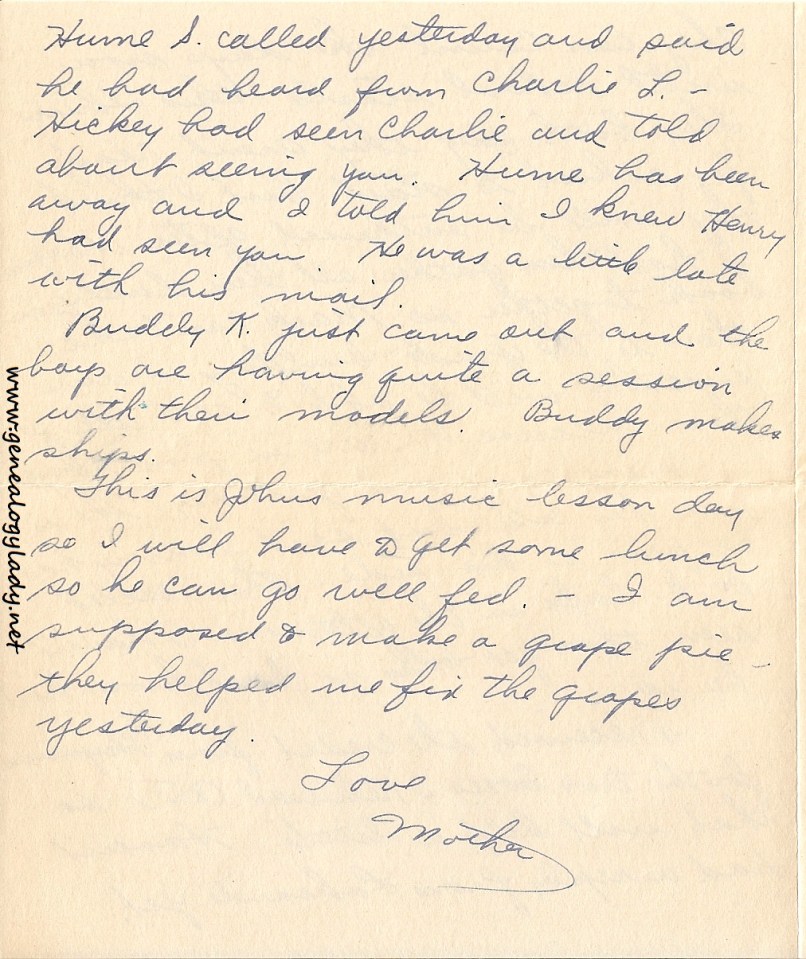 Hume S. called yesterday and said
he had heard from Charlie L. -
Hickey had seen Charlie and told
about seeing you. Hume has been
away and I told him I knew Henry
had seen you He was a little late
with his mail.
Buddy K. just came out and the
boys are having quite a session
with their models. Buddy makes
ships.
This is Johns music lesson day
so I will have to get some lunch
so he can go well fed. - I am
supposed to make a grape pie -
they helped me fix the grapes
yesterday.
Love
Mother
www.genealogylady.net